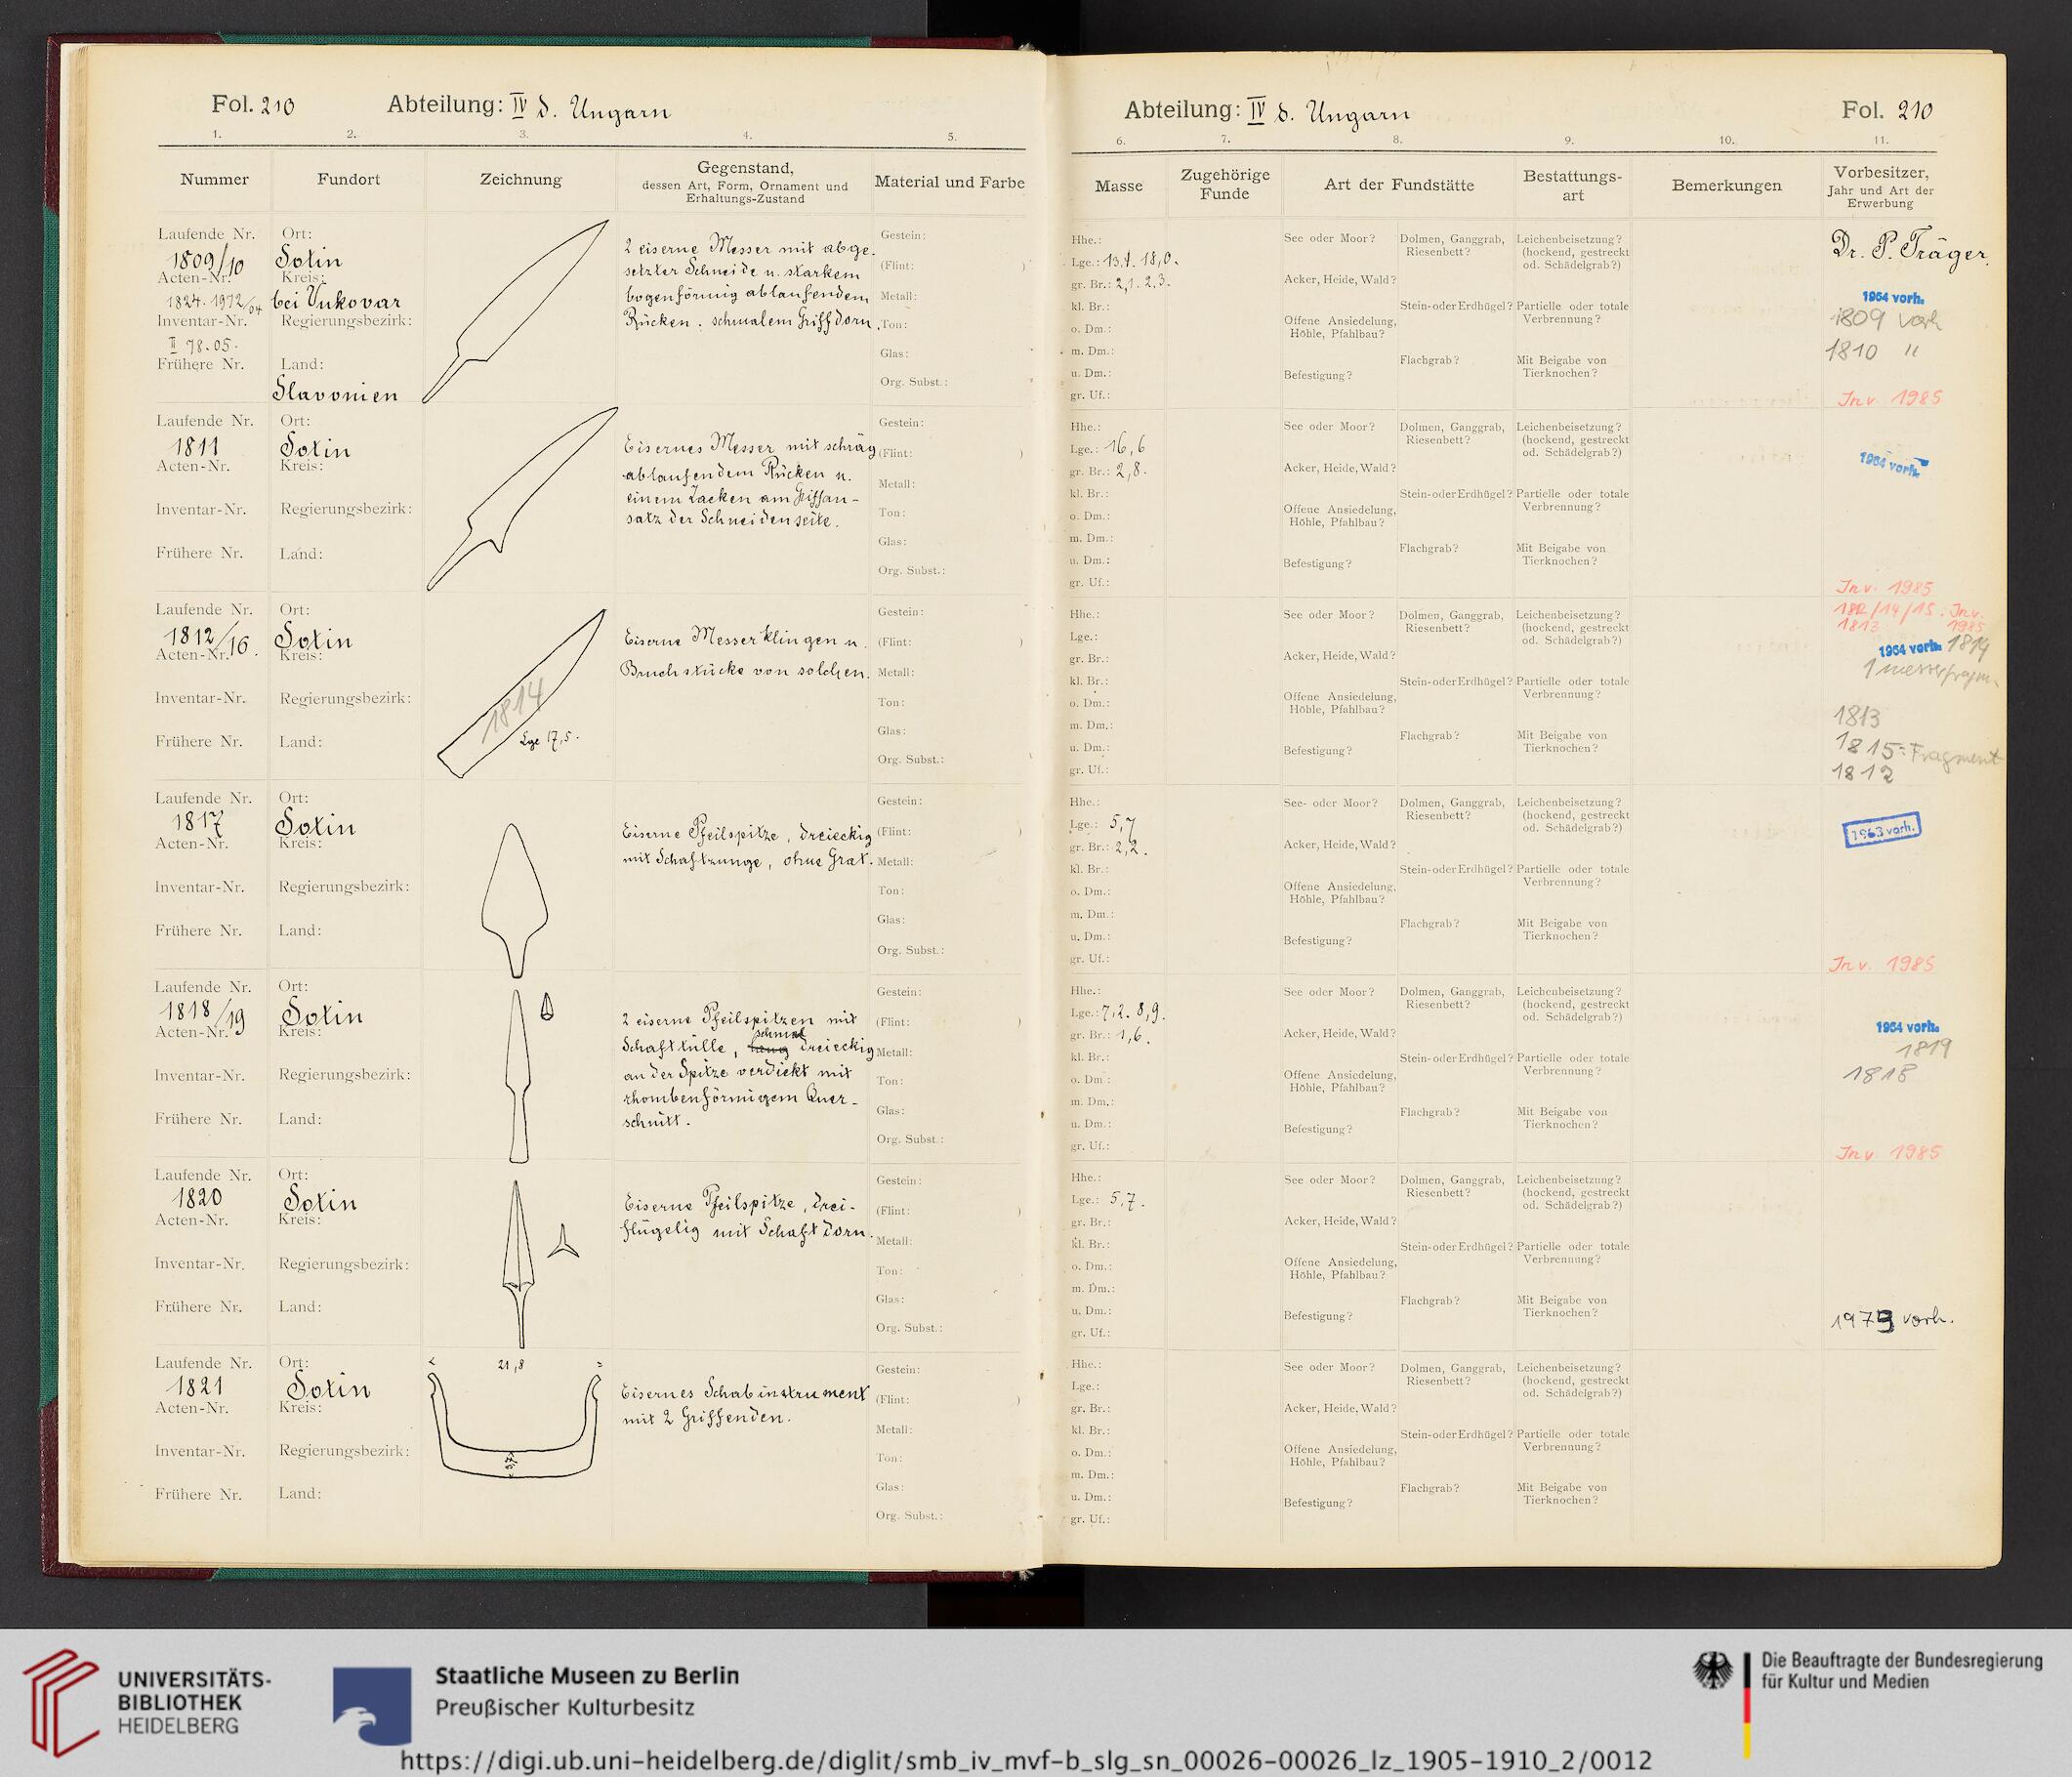 Fol. 210 Abteilung: IV d. Ungarn
1. 2. 3. 4. 5.
Nummer Fundort Zeichnung Gegenstand, dessen Art, Form, Ornament und Erhaltungs-Zustand Material und Farbe
Laufende Nr. Ort:
1809/10 Sotin
Acten-Nr. Kreis:
1824. 1972/04 bei Vukovar
Inventar-Nr. Regierungsbezirk:
II 78.05.
Frühere Nr. Land:
Slavonien
2 eiserne Messer mit abge-
setzter Schneide u. starkem
bogenförmig ablaufendem
Rücken. schmalem Griffdorn.
Gestein:
(Flint: )
Metall:
Ton:
Glas:
Org. Subst.:
Laufende Nr. Ort:
1811 Sotin
Acten-Nr. Kreis:
Inventar-Nr. Regierungsbezirk:
Frühere Nr. Land:
Eisernes Messer mit schräg
ablaufendem Rücken u.
einem Zacken am Griffan-
satz der Schneidenseite.
Gestein:
(Flint: )
Metall:
Ton:
Glas:
Org. Subst.:
Laufende Nr. Ort:
1812/16. Sotin
Acten-Nr. Kreis:
Inventar-Nr. Regierungsbezirk:
Frühere Nr. Land:
1814
Lge 17,5.
Eiserne Messerklingen u.
Bruchstücke von solchen.
Gestein:
(Flint: )
Metall:
Ton:
Glas:
Org. Subst.:
Laufende Nr. Ort:
1817 Sotin
Acten-Nr. Kreis:
Inventar-Nr. Regierungsbezirk:
Frühere Nr. Land:
Eiserne Pfeilspitze, dreieckig
mit Schaftzunge, ohne Grat.
Gestein:
(Flint: )
Metall:
Ton:
Glas:
Org. Subst.:
Laufende Nr. Ort:
1818/19 Sotin
Acten-Nr. Kreis:
Inventar-Nr. Regierungsbezirk:
Frühere Nr. Land:
2 eiserne Pfeilspitzen mit
Schafttülle, schmal dreieckig
an der Spitze verdickt mit
rhombenförmigem Quer-
schnitt.
Gestein:
(Flint: )
Metall:
Ton:
Glas:
Org. Subst.:
Laufende Nr. Ort:
1820 Sotin
Acten-Nr. Kreis:
Inventar-Nr. Regierungsbezirk:
Frühere Nr. Land:
Eiserne Pfeilspitze, drei-
flügelig mit Schaftdorn.
Gestein:
(Flint: )
Metall:
Ton:
Glas:
Org. Subst.:
Laufende Nr. Ort:
1821 Sotin
Acten-Nr. Kreis:
Inventar-Nr. Regierungsbezirk:
Frühere Nr. Land:
21,8
Eisernes Schabinstrument
mit 2 Griffenden.
Gestein:
(Flint: )
Metall:
Ton:
Glas:
Org. Subst.:
Abteilung: IV d. Ungarn Fol. 210
6. 7. 8. 9. 10. 11.
Masse Zugehörige Funde Art der Fundstätte Bestattungs-art Bemerkungen Vorbesitzer, Jahr und Art der Erwerbung
Hhe.: See oder Moor? Dolmen, Ganggrab, Riesenbett? Leichenbeisetzung? (hockend, gestreckt od. Schädelgrab?)
Lge.: 13,1. 18,0.
gr. Br.: 2,1. 2,3. Acker, Heide, Wald?
kl. Br.: Stein- oder Erdhügel? Partielle oder totale Verbrennung?
o. Dm.: Offene Ansiedelung, Höhle, Pfahlbau?
m. Dm.: Flachgrab? Mit Beigabe von Tierknochen?
u. Dm.: Befestigung?
gr. Uf.:
Dr. P. Träger.
1964 vorh.
1809 vorh
1810 "
Inv. 1985
Hhe.: See oder Moor? Dolmen, Ganggrab, Riesenbett? Leichenbeisetzung? (hockend, gestreckt od. Schädelgrab?)
Lge.: 16,6
gr. Br.: 2,8. Acker, Heide, Wald?
kl. Br.: Stein- oder Erdhügel? Partielle oder totale Verbrennung?
o. Dm.: Offene Ansiedelung, Höhle, Pfahlbau?
m. Dm.: Flachgrab? Mit Beigabe von Tierknochen?
u. Dm.: Befestigung?
gr. Uf.:
1964 vorh.
Inv. 1985
Hhe.: See oder Moor? Dolmen, Ganggrab, Riesenbett? Leichenbeisetzung? (hockend, gestreckt od. Schädelgrab?)
Lge.:
gr. Br.: Acker, Heide, Wald?
kl. Br.: Stein- oder Erdhügel? Partielle oder totale Verbrennung?
o. Dm.: Offene Ansiedelung, Höhle, Pfahlbau?
m. Dm.: Flachgrab? Mit Beigabe von Tierknochen?
u. Dm.: Befestigung?
gr. Uf.:
1812/14/15: Inv.
1813 1985
1964 vorh. 1814
1 messerfragm.
1813
1815 = Fragment
1812
Hhe.: See- oder Moor? Dolmen, Ganggrab, Riesenbett? Leichenbeisetzung? (hockend, gestreckt od. Schädelgrab?)
Lge.: 5,7
gr. Br.: 2,2. Acker, Heide, Wald?
kl. Br.: Stein- oder Erdhügel? Partielle oder totale Verbrennung?
o. Dm.: Offene Ansiedelung, Höhle, Pfahlbau?
m. Dm.: Flachgrab? Mit Beigabe von Tierknochen?
u. Dm.: Befestigung?
gr. Uf.:
1963 vorh.
Inv. 1985
Hhe.: See oder Moor? Dolmen, Ganggrab, Riesenbett? Leichenbeisetzung? (hockend, gestreckt od. Schädelgrab?)
Lge.: 7,2. 8,9.
gr. Br.: 1,6. Acker, Heide, Wald?
kl. Br.: Stein- oder Erdhügel? Partielle oder totale Verbrennung?
o. Dm.: Offene Ansiedelung, Höhle, Pfahlbau?
m. Dm.: Flachgrab? Mit Beigabe von Tierknochen?
u. Dm.: Befestigung?
gr. Uf.:
1964 vorh.
1819
1818
Inv. 1985
Hhe.: See oder Moor? Dolmen, Ganggrab, Riesenbett? Leichenbeisetzung? (hockend, gestreckt od. Schädelgrab?)
Lge.: 5,7.
gr. Br.: Acker, Heide, Wald?
kl. Br.: Stein- oder Erdhügel? Partielle oder totale Verbrennung?
o. Dm.: Offene Ansiedelung, Höhle, Pfahlbau?
m. Dm.: Flachgrab? Mit Beigabe von Tierknochen?
u. Dm.: Befestigung?
gr. Uf.:
1979 vorh.
Hhe.: See oder Moor? Dolmen, Ganggrab, Riesenbett? Leichenbeisetzung? (hockend, gestreckt od. Schädelgrab?)
Lge.:
gr. Br.: Acker, Heide, Wald?
kl. Br.: Stein- oder Erdhügel? Partielle oder totale Verbrennung?
o. Dm.: Offene Ansiedelung, Höhle, Pfahlbau?
m. Dm.: Flachgrab? Mit Beigabe von Tierknochen?
u. Dm.: Befestigung?
gr. Uf.:
UNIVERSITÄTS-
BIBLIOTHEK
HEIDELBERG
Staatliche Museen zu Berlin
Preußischer Kulturbesitz
Die Beauftragte der Bundesregierung
für Kultur und Medien
https://digi.ub.uni-heidelberg.de/diglit/smb_iv_mvf-b_slg_sn_00026-00026_lz_1905-1910_2/0012